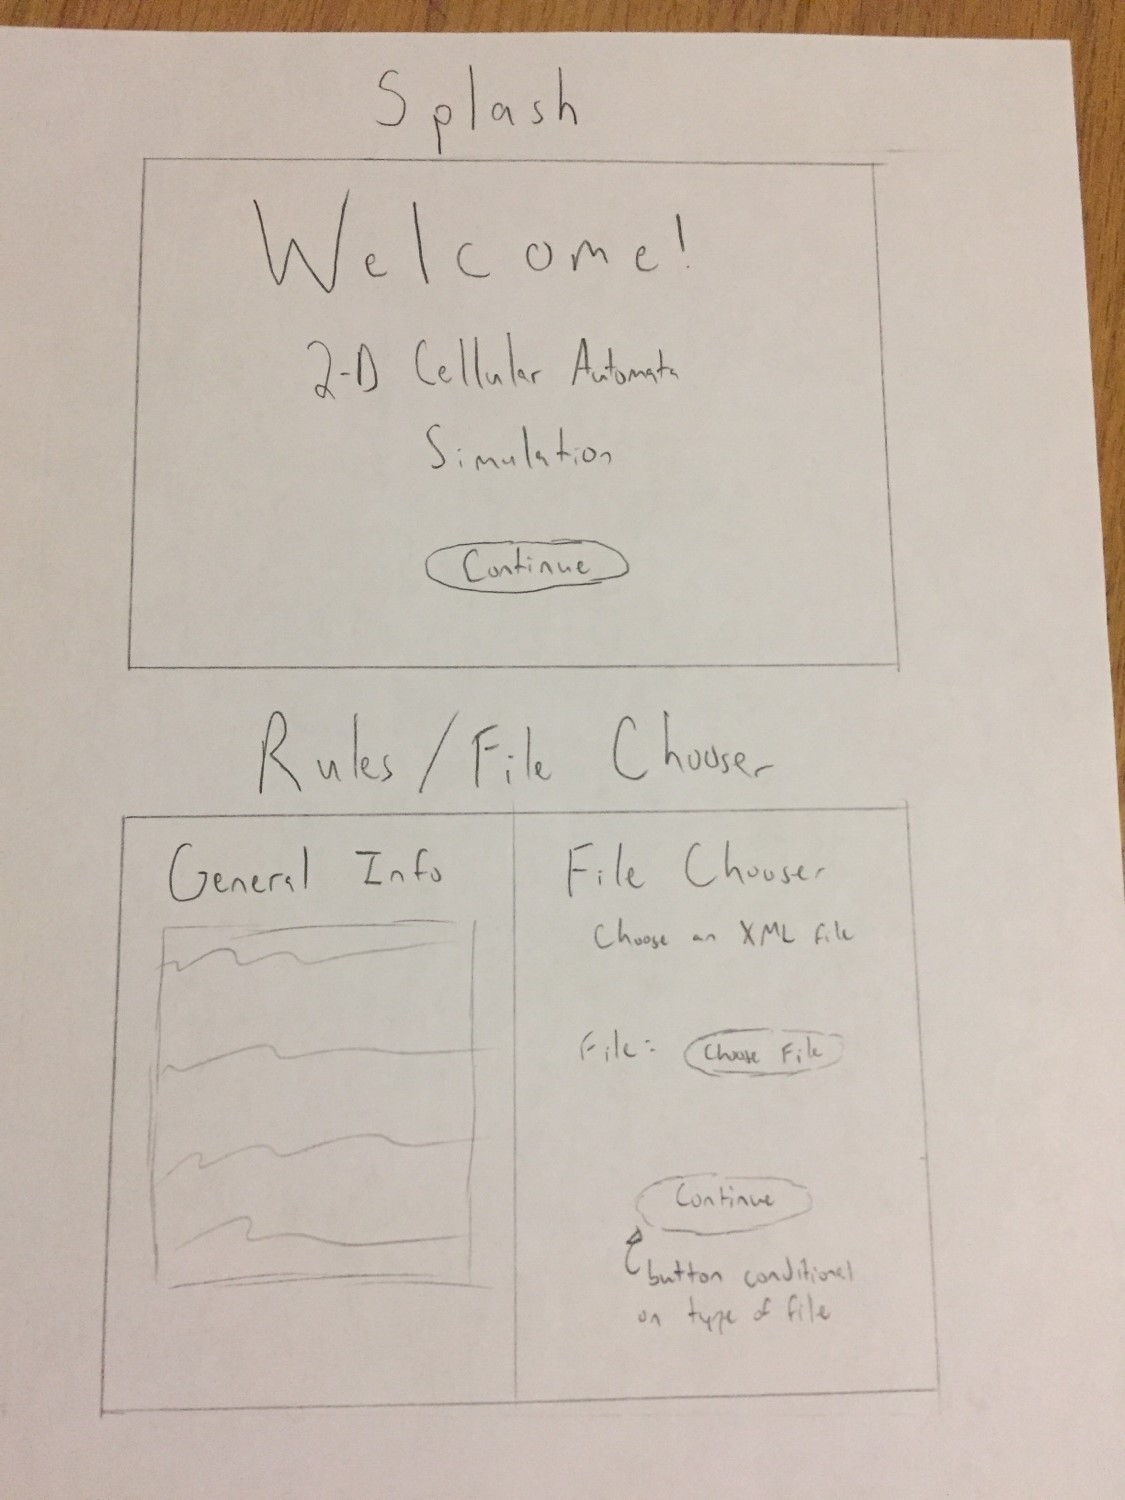 Splash
Welcome!
2-D Cellular Automata
Simulation
Continue
Rules/File Chooser
General Info
File Chooser
Choose an XML file
File: Choose File
Continue
button conditional
on type of file